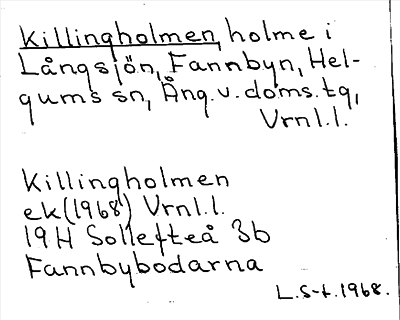 Killingholmen, holme i
Långsjön, Fannbyn, Hel-
gums sn, Ång. v. doms. tg,
Vrnl.l.
Killingholmen
ek (1968) Vrnl.l.
19H Sollefteå 3b
Fannbybodarna
L.S-t. 1968.